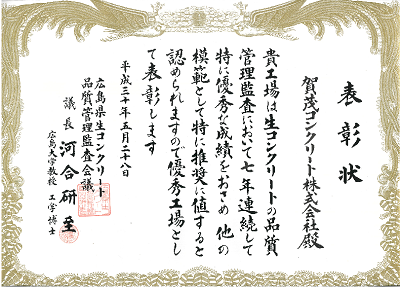 表彰状
賀茂コンクリート株式会社殿
貴工場は生コンクリートの品質
管理監査において七年連続して
特に優秀な成績をおさめ他の
模範として特に推奨に値すると
認められますので優秀工場とし
て表彰します
平成三十年五月二十八日
広島県生コンクリート
品質管理監査会議
議長 河合研至
広島大学教授 工学博士